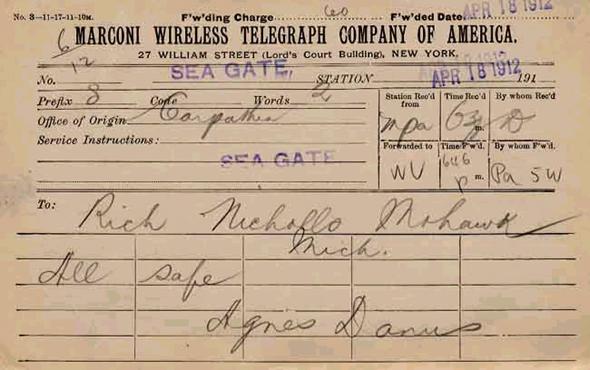 No. 3—11-17-11-10M. F'w'ding Charge 60 F'w'ded Date APR 18 1912
6 MARCONI WIRELESS TELEGRAPH COMPANY OF AMERICA.
12 27 WILLIAM STREET (Lord's Court Building), NEW YORK,
No. SEA GATE, STATION APR 18 1912 191
Prefix S Code Words 2
Office of Origin Carpathia
Service Instructions:
SEA GATE.
Station Rec'd from Time Rec'd By whom Rec'd
mpa m. D
Forwarded to Time F'w'd. By whom F'w'd.
WU 646 p m. Pa SW
To: Rich Nicholls Mohawk
Mich.
All safe
Agnes Davis